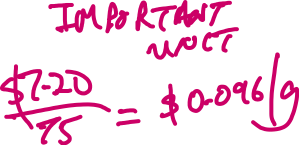 IMPORTANT
UNIT
$7.20
75 = $0.096/g